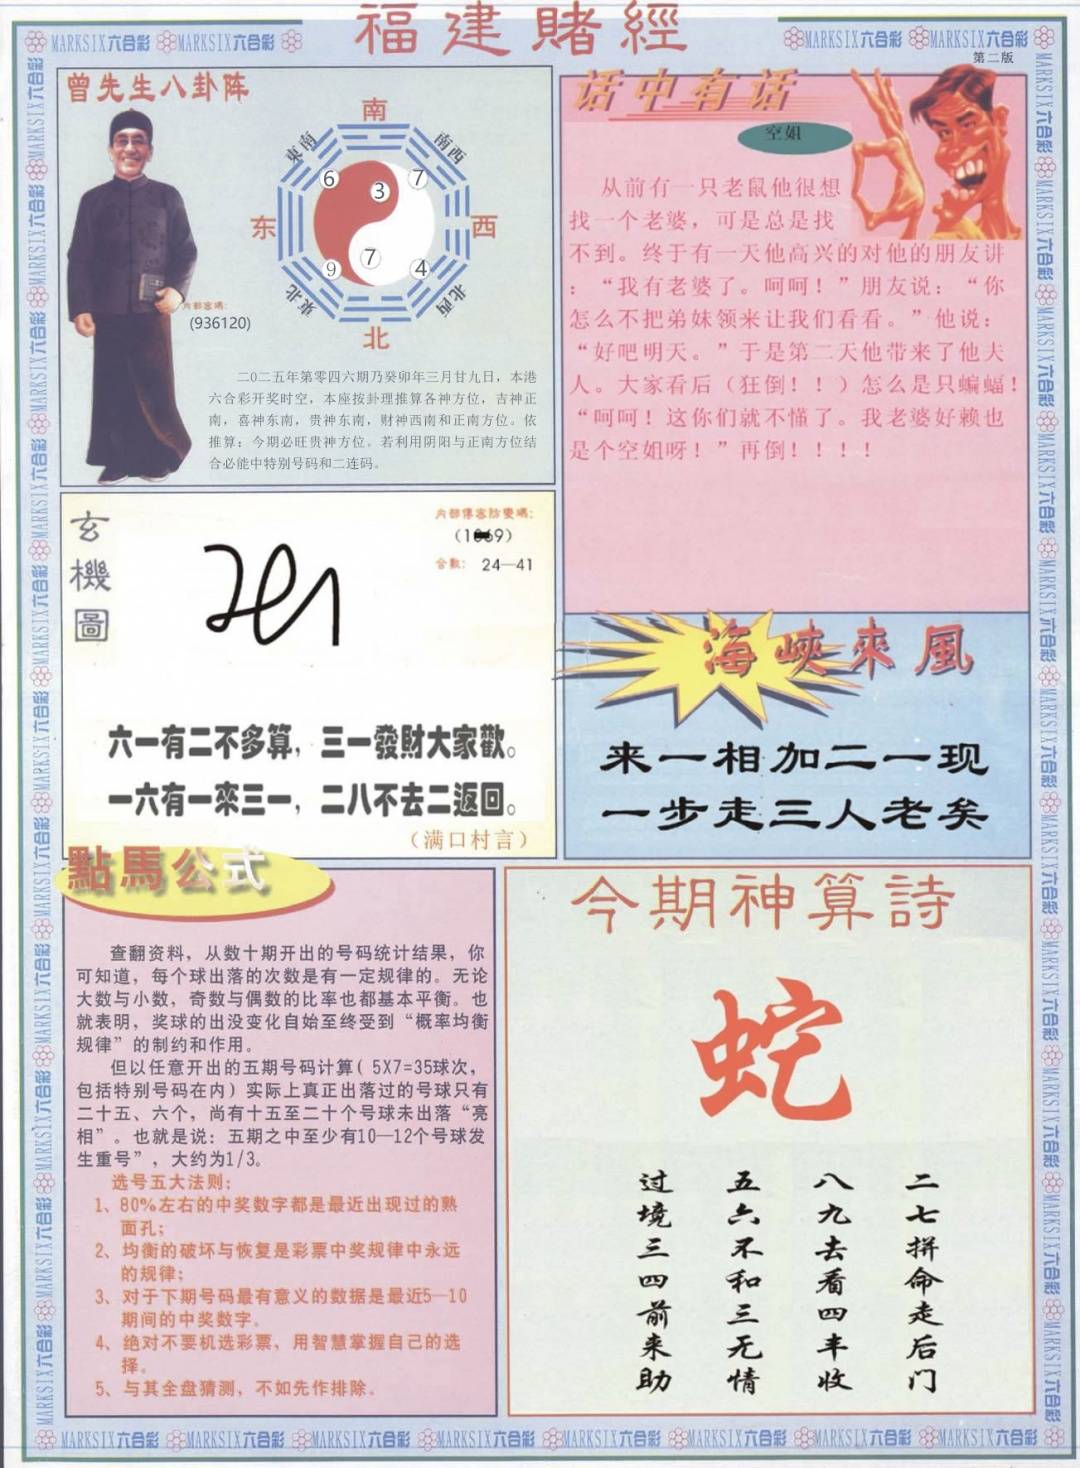 福建賭經
MARKSIX六合彩 MARKSIX六合彩
MARKSIX六合彩 MARKSIX六合彩
第二版
曾先生八卦阵
南
東南
南西
6
3
7
东
西
9
7
4
東北
北西
北
内部密碼:
(936120)
二0二五年第零四六期乃癸卯年三月廿九日，本港
六合彩开奖时空，本座按卦理推算各神方位，吉神正
南，喜神东南，贵神东南，财神西南和正南方位。依
推算：今期必旺贵神方位。若利用阴阳与正南方位结
合必能中特别号码和二连码。
话中有话
空姐
从前有一只老鼠他很想
找一个老婆，可是总是找
不到。终于有一天他高兴的对他的朋友讲
：“我有老婆了。呵呵！”朋友说：“你
怎么不把弟妹领来让我们看看。”他说：
“好吧明天。”于是第二天他带来了他夫
人。大家看后（狂倒！！）怎么是只蝙蝠！
“呵呵！这你们就不懂了。我老婆好赖也
是个空姐呀！”再倒！！！！
玄機圖
内部傳密防變碼:
合數: 24—41
六一有二不多算，三一發財大家歡。
一六有一來三一，二八不去二返回。
（满口村言）
海峽來風
来一相加二一现
一步走三人老矣
點馬公式
查翻资料，从数十期开出的号码统计结果，你
可知道，每个球出落的次数是有一定规律的。无论
大数与小数，奇数与偶数的比率也都基本平衡。也
就表明，奖球的出没变化自始至终受到“概率均衡
规律”的制约和作用。
但以任意开出的五期号码计算( 5X7=35球次，
包括特别号码在内）实际上真正出落过的号球只有
二十五、六个，尚有十五至二十个号球未出落“亮
相”。也就是说：五期之中至少有10—12个号球发
生重号”，大约为1/3。
选号五大法则：
1、80%左右的中奖数字都是最近出现过的熟
面孔；
2、均衡的破坏与恢复是彩票中奖规律中永远
的规律；
3、对于下期号码最有意义的数据是最近5—10
期间的中奖数字。
4、绝对不要机选彩票，用智慧掌握自己的选
择。
5、与其全盘猜测，不如先作排除。
今期神算詩
蛇
二七拼命走后门
八九去看四丰收
五六不和三无情
过境三四前来助
MARKSIX六合彩 MARKSIX六合彩 MARKSIX六合彩 MARKSIX六合彩 MARKSIX六合彩 MARKSIX六合彩 MARKSIX六合彩 MARKSIX六合彩